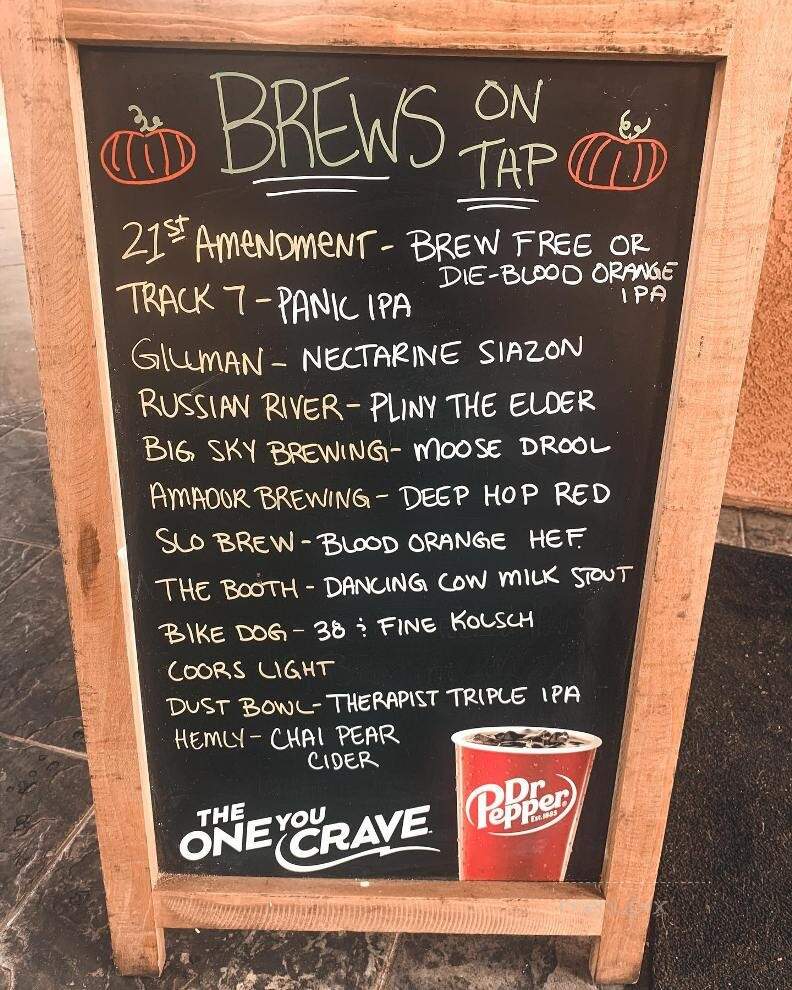 BREWS ON TAP
21st AMENDMENT - BREW FREE OR
DIE-BLOOD ORANGE
IPA
TRACK 7 - PANIC IPA
GILLMAN - NECTARINE SIAZON
RUSSIAN RIVER - PLINY THE ELDER
BIG SKY BREWING - MOOSE DROOL
AMADOR BREWING - DEEP HOP RED
SLO BREW - BLOOD ORANGE HEF.
THE BOOTH - DANCING COW MILK STOUT
BIKE DOG - 38 & FINE KOLSCH
COORS LIGHT
DUST BOWL - THERAPIST TRIPLE IPA
HEMLY - CHAI PEAR
CIDER
THE
ONE YOU
CRAVE
Dr
Pepper
Est. 1885